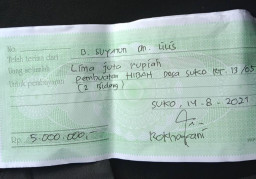 No.
Telah terima dari B. Suyanun an. Liis
Uang sejumlah Lima juta rupiah
Untuk pembayaran pembuatan HIBAH Desa Suko per. 13/05
(2 bidang)
SUKO, 14 - 8 - 2021
Rp. 5.000.000,-
Rokhayani